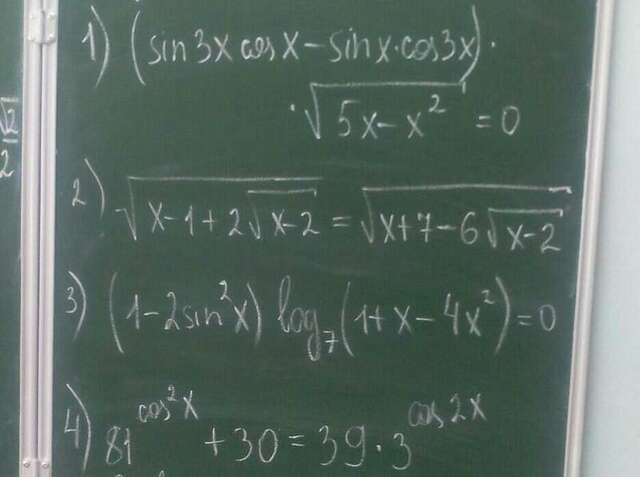 √2/2
1) (sin3x cosx − sinx·cos3x)·
·√(5x − x²) = 0
2) √(x−1+2√(x−2)) = √(x+7−6√(x−2))
3) (1−2sin²x) log₇(1+x−4x²) = 0
4) 81^(cos²x) + 30 = 39·3^(cos2x)